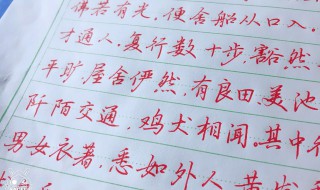 佛若有光，便舍船从口入
才通人，复行数十步，豁然
平旷，屋舍俨然，有良田美池
阡陌交通，鸡犬相闻。其中
男女衣著，悉如外人，黄发